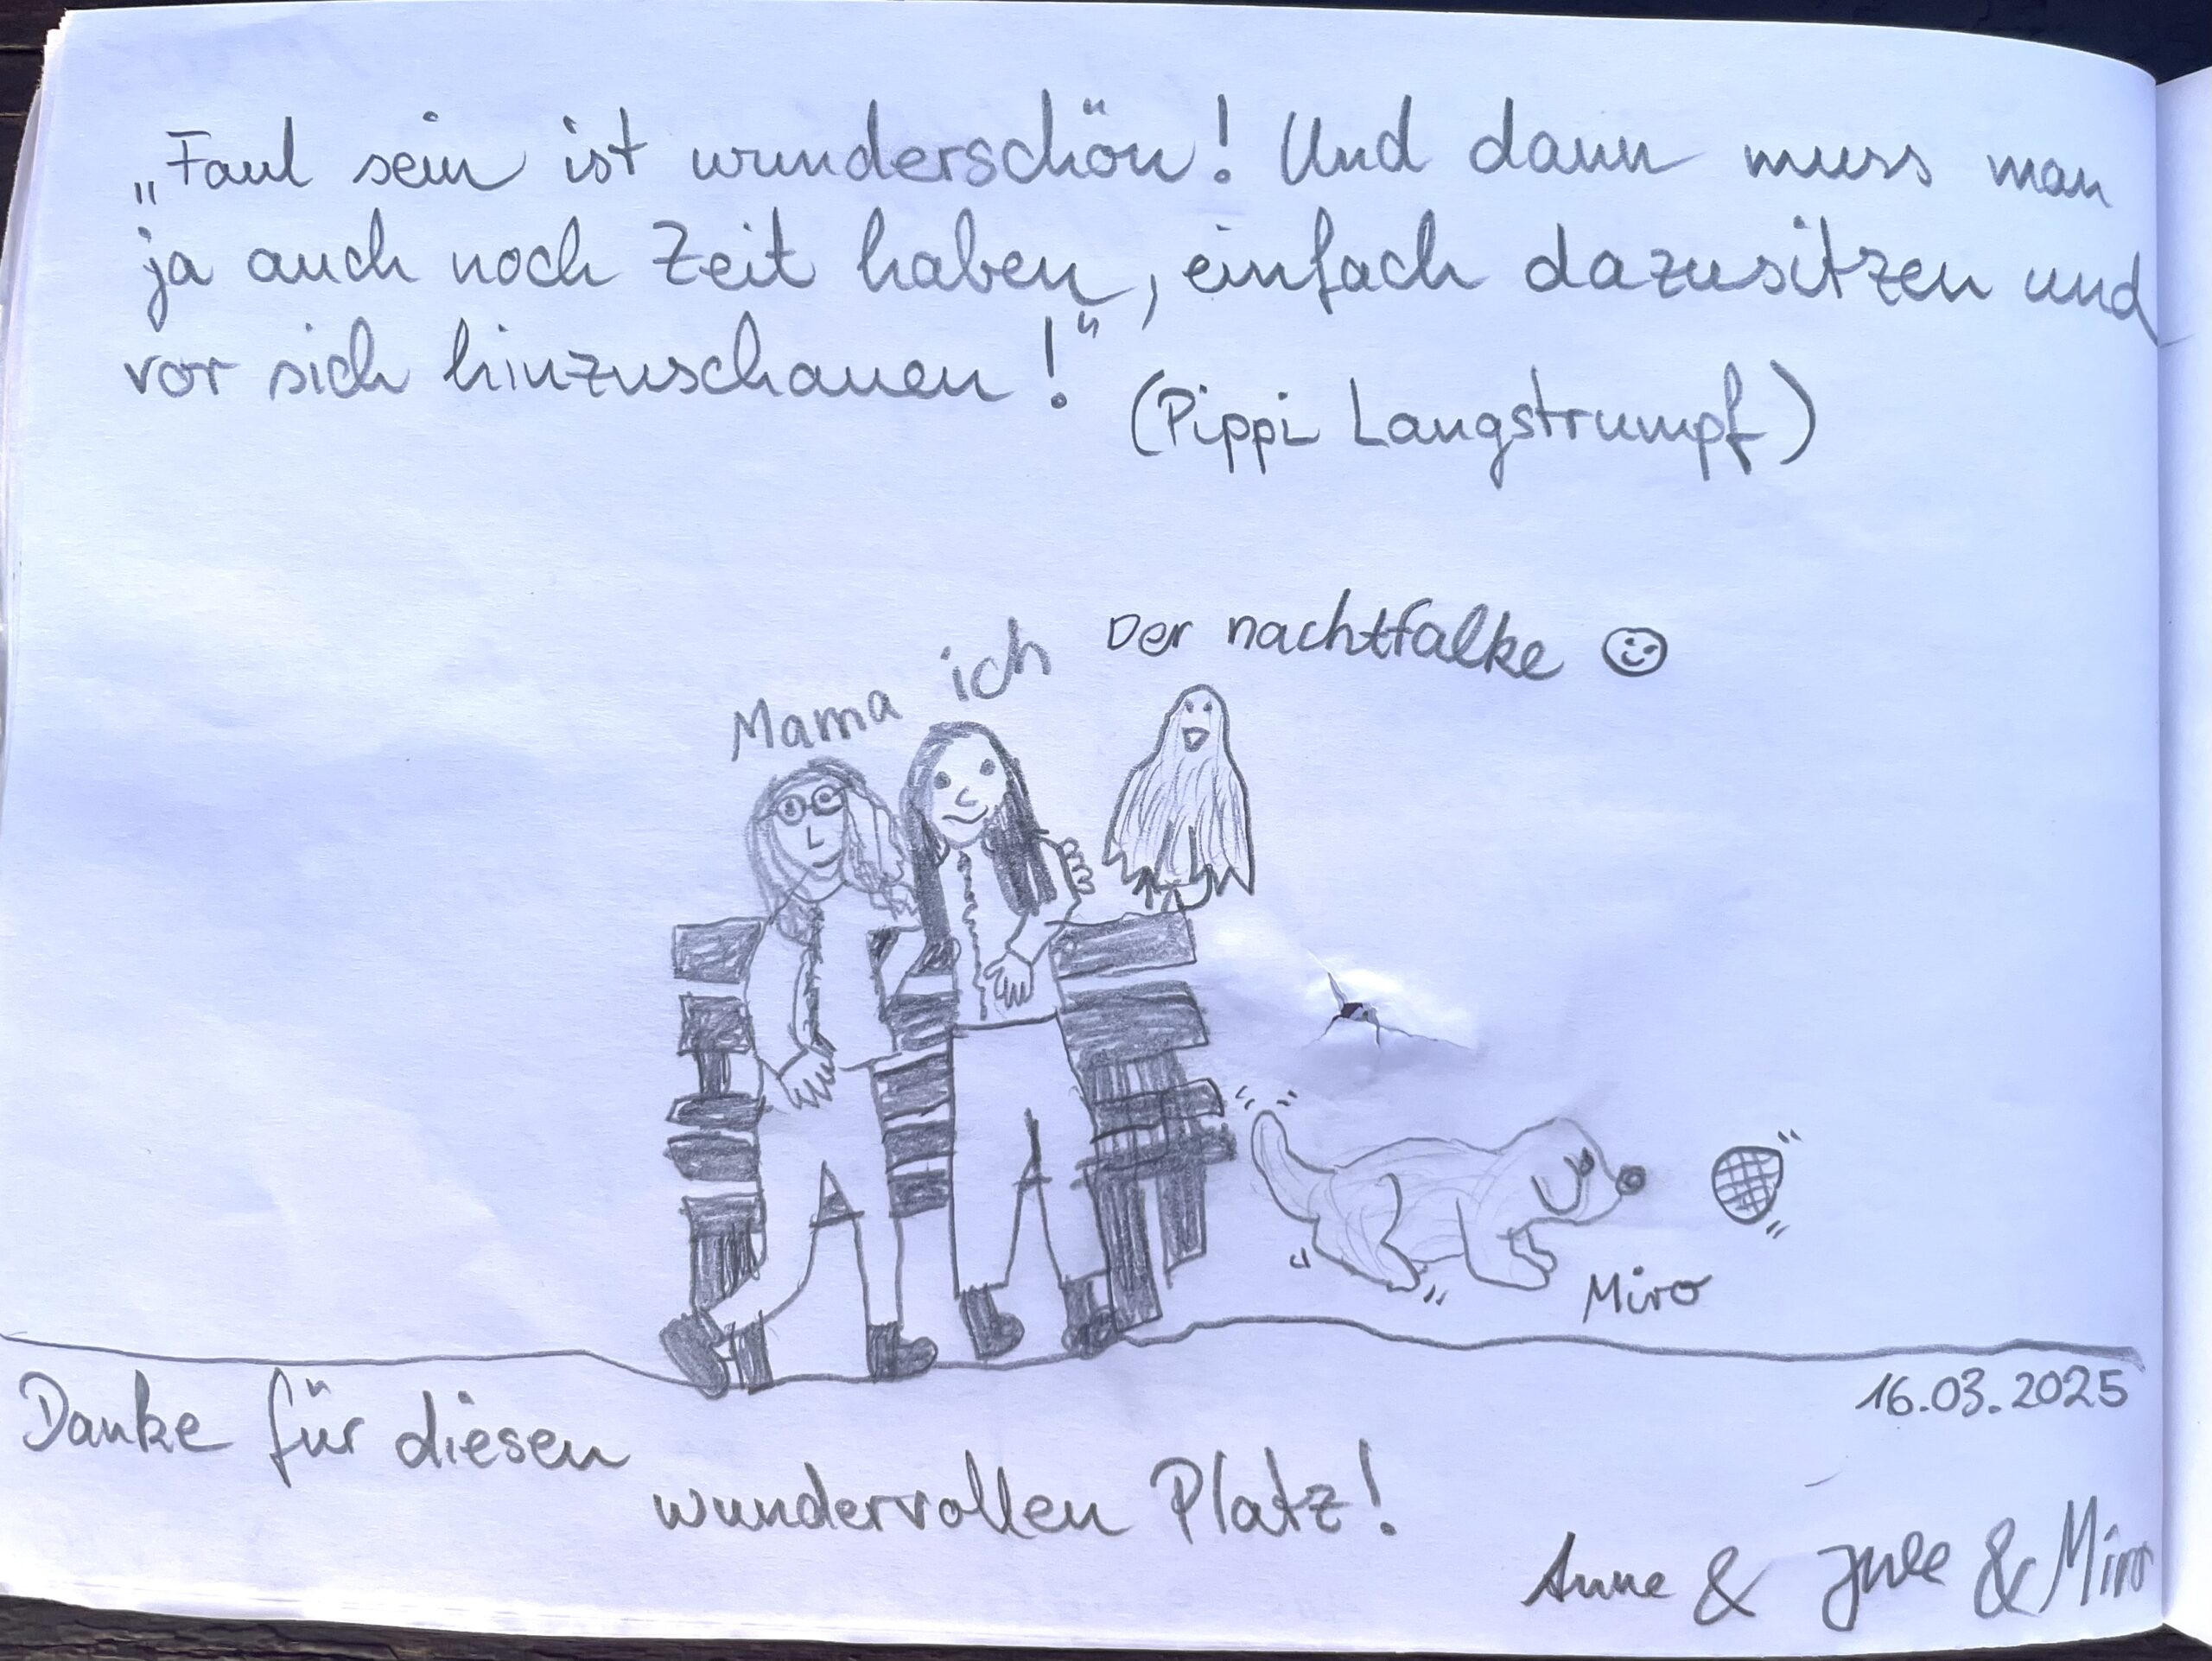 „Faul sein ist wunderschön! Und dann muss man
ja auch noch Zeit haben, einfach dazusitzen und
vor sich hinzuschauen!“
(Pippi Langstrumpf)
Mama
ich
Der nachtfalke ☺
Miro
16.03.2025
Danke für diesen
wundervollen Platz!
Anne & Jule & Miro